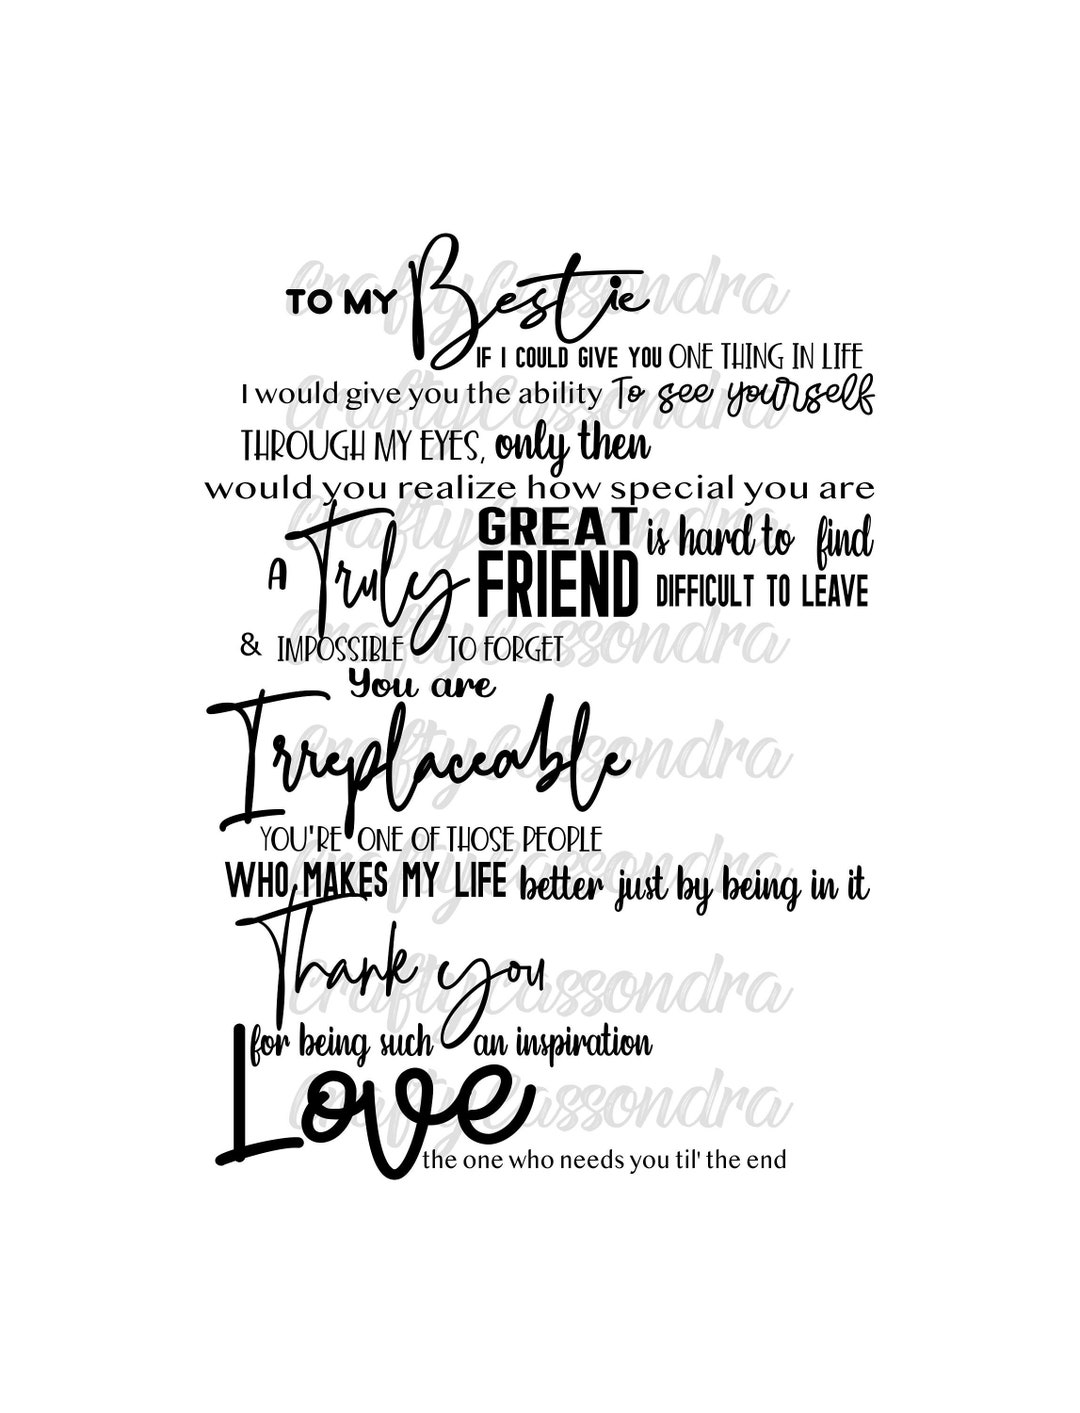 TO MY Bestie
IF I COULD GIVE YOU ONE THING IN LIFE
I would give you the ability To see yourself
THROUGH MY EYES, only then
would you realize how special you are
A Truly GREAT FRIEND is hard to find
DIFFICULT TO LEAVE
& IMPOSSIBLE TO FORGET
You are
Irreplaceable
YOU'RE ONE OF THOSE PEOPLE
WHO MAKES MY LIFE better just by being in it
Thank you
for being such an inspiration
Love
the one who needs you til' the end
CraftyCassondra
CraftyCassondra
CraftyCassondra
CraftyCassondra
CraftyCassondra
CraftyCassondra
CraftyCassondra
CraftyCassondra